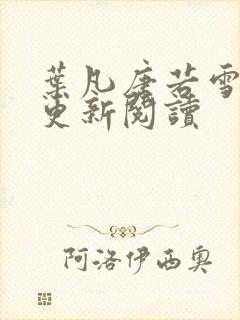 葉凡唐若雪
更新閱讀
阿洛伊西奧